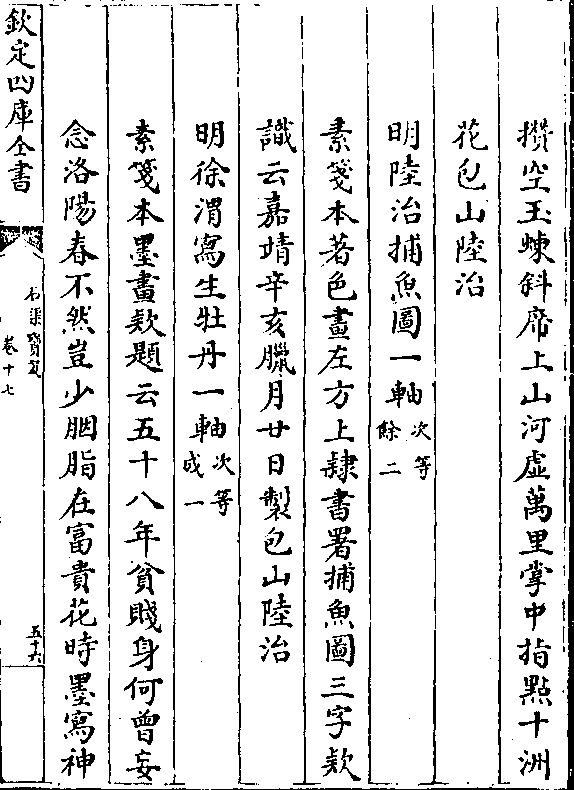 攢空玉竦斜席上山河虚萬里掌中指㸃十洲
花包山陸治
明陸治捕魚圖一軸次等餘二
素箋本著色畫左方上隸書署捕魚圖三字款
識云嘉靖辛亥臘月廿日製包山陸治
明徐渭寫生牡丹一軸次等成一
素箋本墨畫款題云五十八年貧賤身何曾妄
念洛陽春不然豈少胭脂在富貴花時墨寫神
欽定四庫全書
石渠寶笈
卷十七
五十六